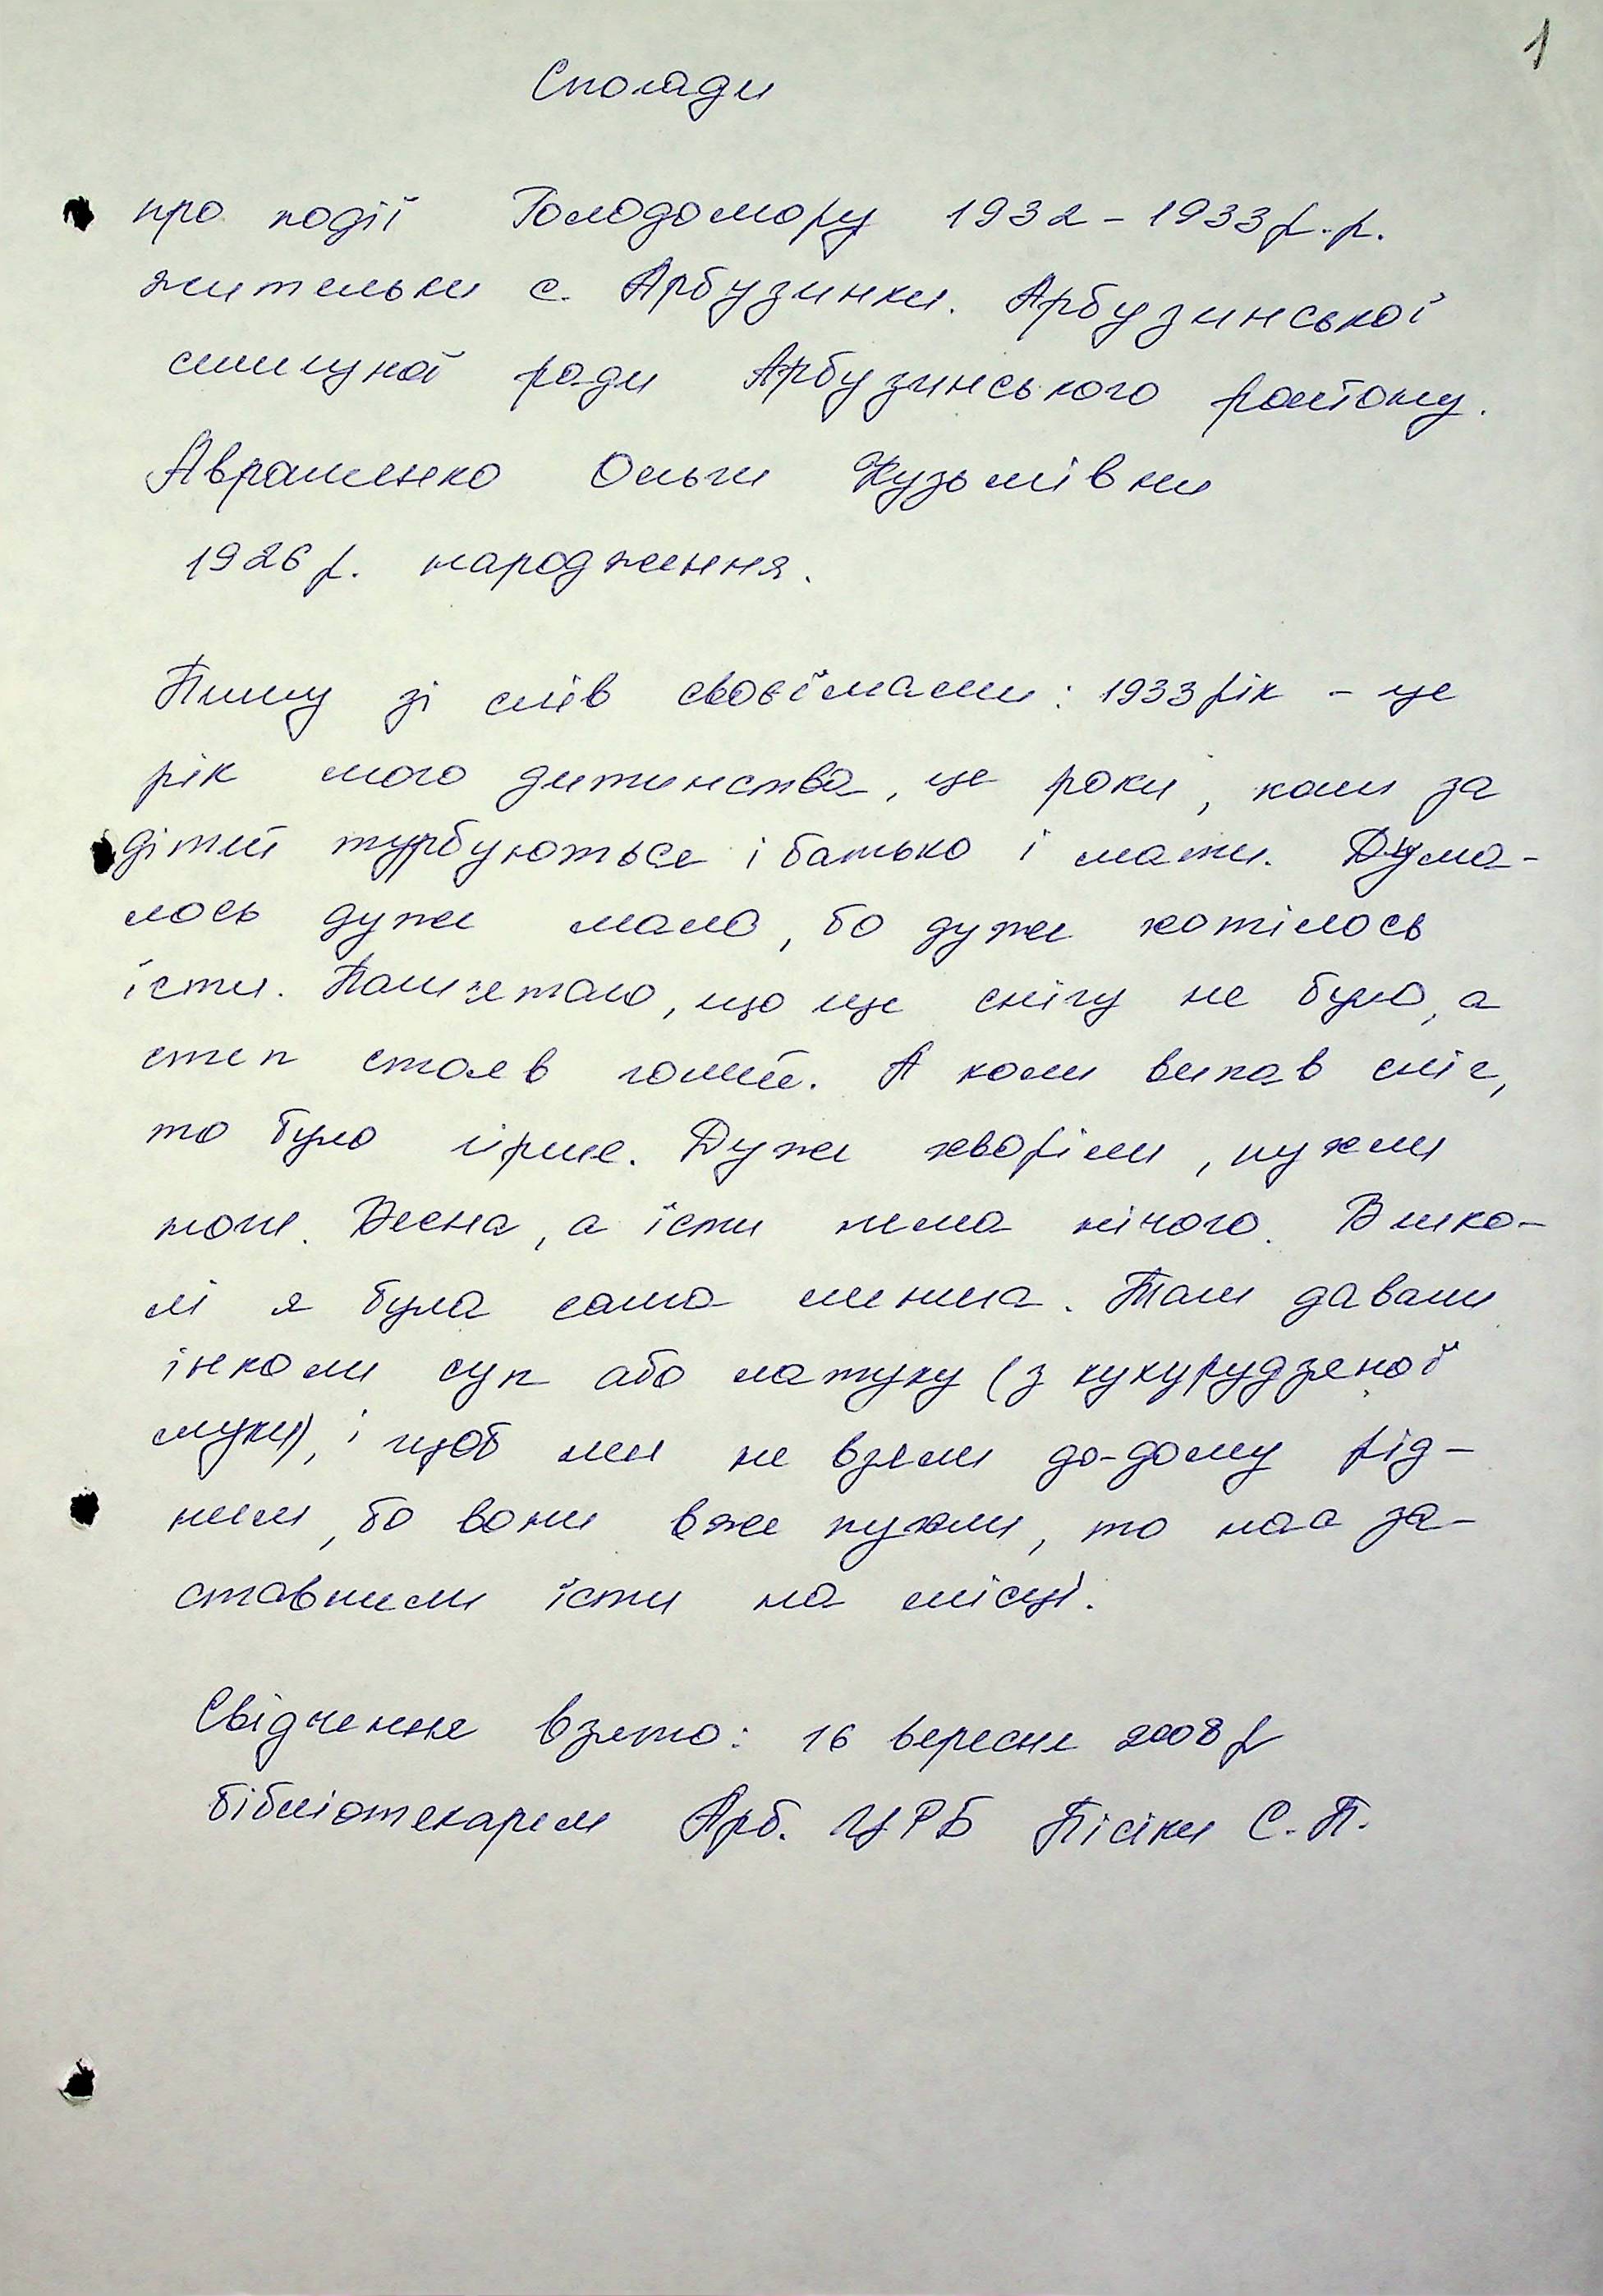 1
Спогади
про події Голодомору 1932-1933 р.р.
жительки с. Арбузинки. Арбузинської
селищної ради Арбузинського району.
Авраменко Ольги Кузьмівни
1926 р. народження.
Пишу зі слів своєї мами: 1933 рік - це
рік мого дитинства, це роки, коли за
дітей турбуються і батько і мати. Дума-
лось дуже мало, бо дуже хотілось
їсти. Пам'ятаю, що ще снігу не було, а
степ стояв голий. А коли випав сніг,
то було гірше. Дуже хворіли, пухли
ноги. Весна, а їсти нема нічого. В шко-
лі я була сама менша. Там давали
інколи суп або матуку (з кукурудзяної
муки), і щоб ми не взяли до-дому рід-
ним, бо вони вже пухли, то нас за-
ставили їсти на місці.
Свідчення взято: 16 вересня 2008 р
бібліотекарем Арб. ЦРБ Пісіки С.П.